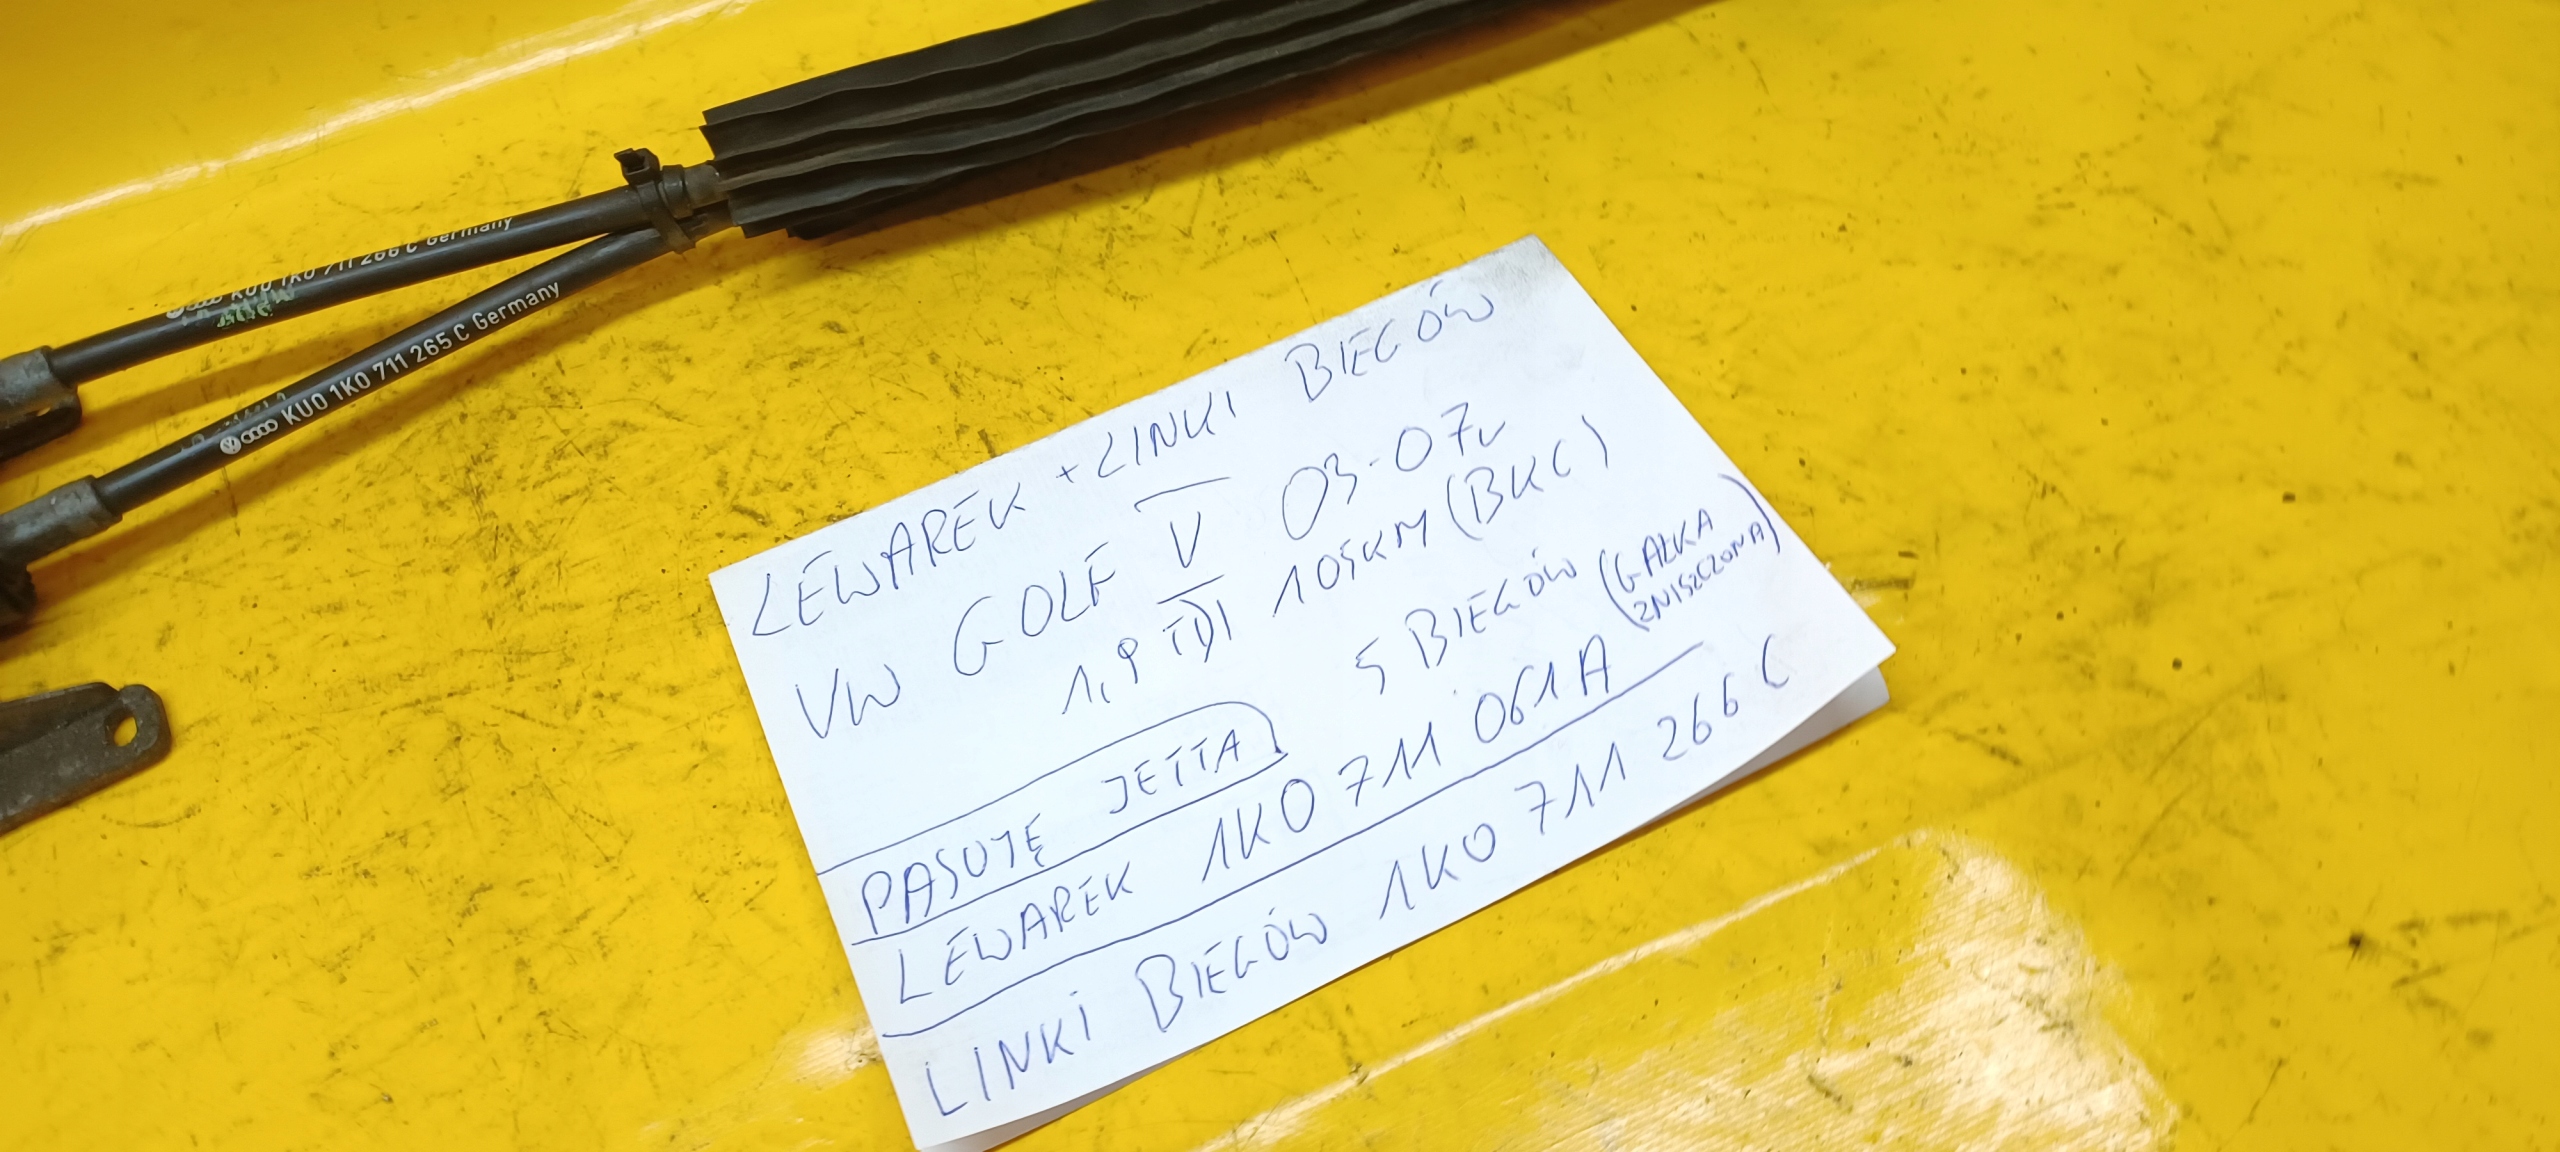 KUO 1K0 711 266 C Germany
KUO 1K0 711 265 C Germany
LEWAREK + LINKI BIEGÓW
VW GOLF V 03-07r
1,9 TDI 105KM (BKC)
5 BIEGÓW (GAŁKA
ZNISZCZONA)
PASUJĘ JETTA
LEWAREK 1K0 711 061A
LINKI BIEGÓW 1K0 711 266 C